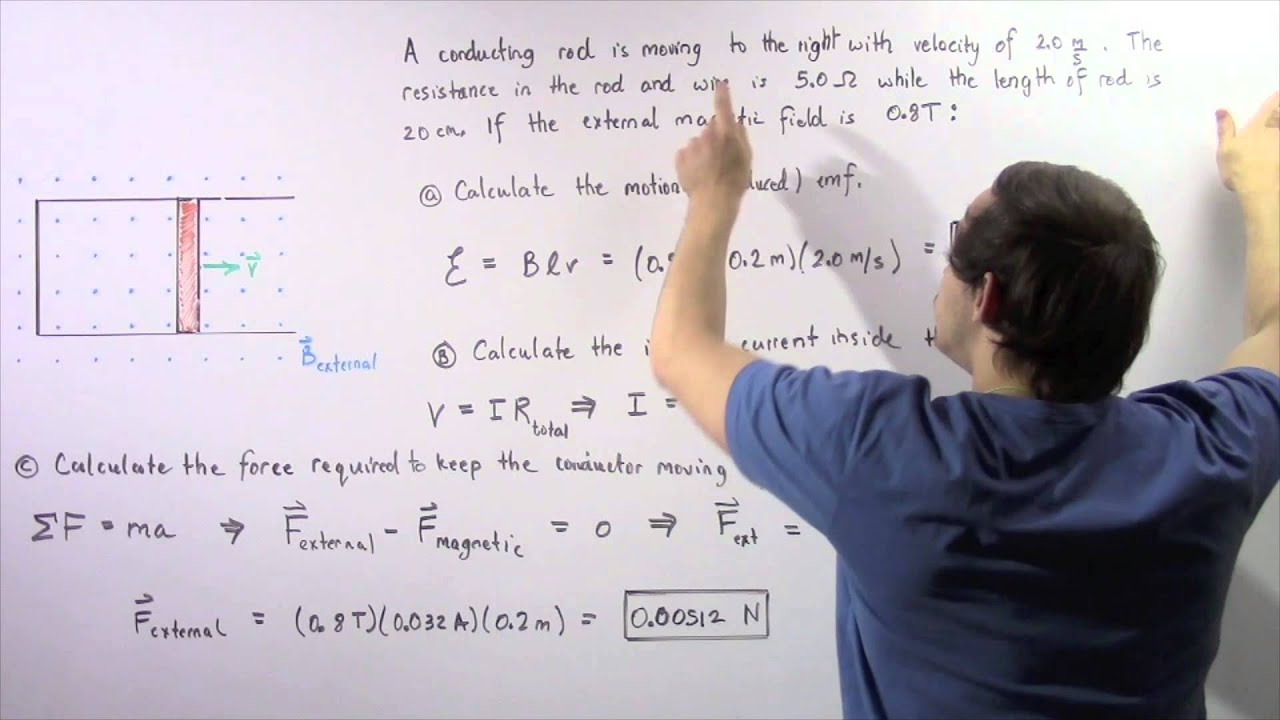 A conducting rod is moving to the right with velocity of 2.0 m/s. The
resistance in the rod and is 5.0 Ω while the length of rod is
20 cm. If the external field is 0.8T:
ⓐ Calculate the emf.
ℰ = Blv = (0. 0.2m)(2.0 m/s) =
Ⓑ Calculate the current inside
V = I R_total ⇒ I =
v⃗
B⃗external
ⓒ Calculate the force required to keep the conductor moving
ΣF = ma ⇒ F⃗external - F⃗magnetic = 0 ⇒ F⃗ext =
F⃗external = (0.8T)(0.032A)(0.2m) = 0.00512 N